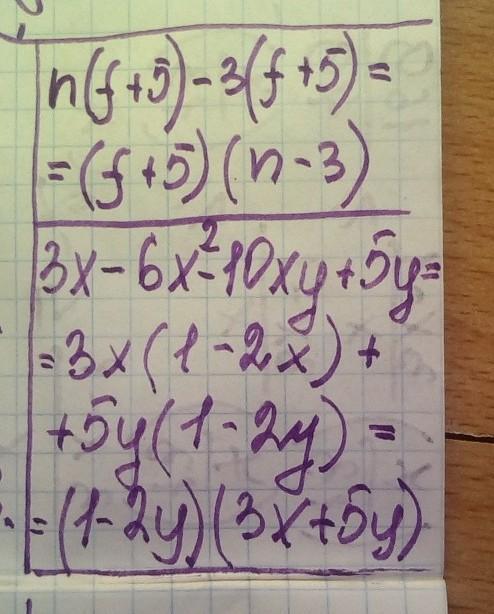 n(f+5)-3(f+5)=
=(f+5)(n-3)
3x-6x²-10xy+5y=
=3x(1-2x)+
+5y(1-2y)=
=(1-2y)(3x+5y)